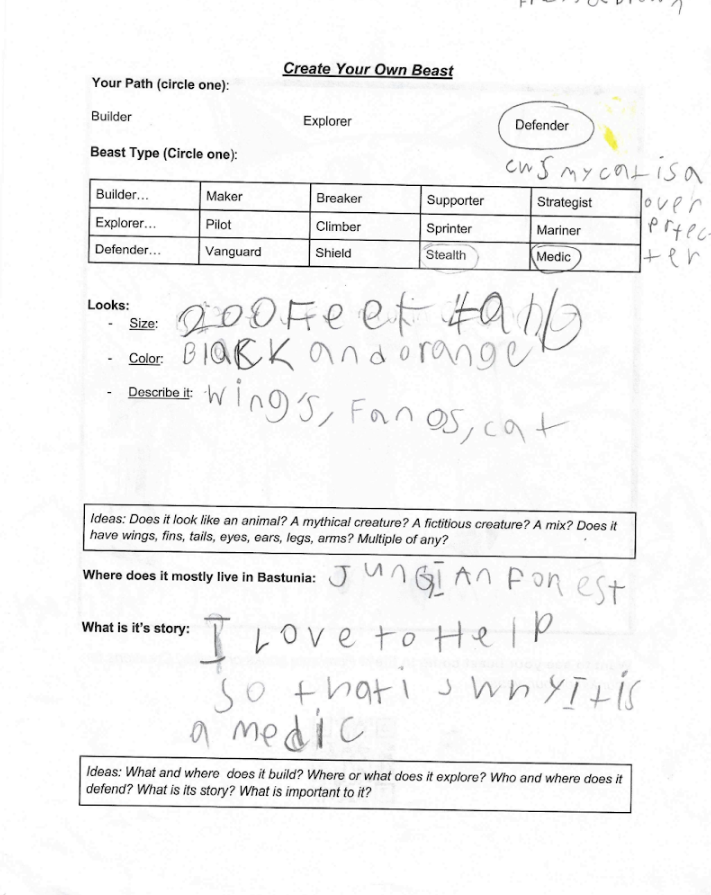 Create Your Own Beast
Your Path (circle one):
Builder Explorer Defender
Beast Type (Circle one):
my cat is a
over
Builder... Maker Breaker Supporter Strategist
Explorer... Pilot Climber Sprinter Mariner
Defender... Vanguard Shield Stealth Medic
Looks:
- Size: 200 Feet tall
- Color: Black and orange
- Describe it: wing's, Fangs, cat
Ideas: Does it look like an animal? A mythical creature? A fictitious creature? A mix? Does it
have wings, fins, tails, eyes, ears, legs, arms? Multiple of any?
Where does it mostly live in Bastunia: JunGIAn Fonest
What is it's story: I Love to Help
so that is whY It is
a medic
Ideas: What and where does it build? Where or what does it explore? Who and where does it
defend? What is its story? What is important to it?